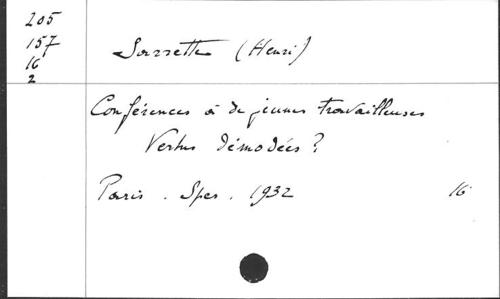 205
157
16
2
Sarrette (Henri)
Conférences à de jeunes travailleuses
Vertus démodées ?
Paris . Spes . 1932 16